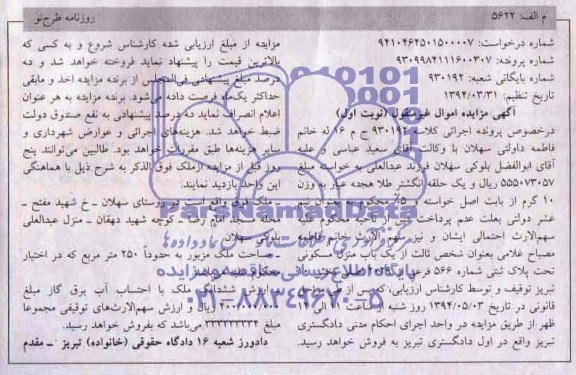 م الف: ۵۶۲۲
روزنامه طرح‌نو
شماره درخواست: ۹۴۱۰۴۶۴۵۰۱۵۰۰۰۰۷
شماره پرونده: ۹۳۰۹۹۸۴۱۱۱۶۰۰۳۰۷
شماره بایگانی شعبه: ۹۳۰۱۹۲
تاریخ تنظیم: ۱۳۹۴/۰۳/۳۱
آگهی مزایده اموال غیرمنقول (نوبت اول)
درخصوص پرونده اجرائی کلاسه ۹۳۰۱۹۲ ج م ۱۶ له خانم
فاطمه داولتی سهلان با وکالت آقای سعید عباسی و علیه
آقای ابوالفضل بلوکی سهلان فرزند عبدالعلی به خواسته مبلغ
۵۵۵۰۷۳۰۵۷ ریال و یک حلقه انگشتر طلا هجده عیار به وزن
۱۰ گرم از بابت اصل خواسته و محکوم به بعنوان نیم
عشر دولتی بعلت عدم پرداخت دین از ناحیه محکوم علیه
سهم‌الارث احتمالی ایشان و نیز سهم الارث خانم فاطمه
مصباح غلامی بعنوان شخص ثالث از یک باب منزل مسکونی
تحت پلاک ثبتی شماره ۵۶۶ فرعی از ۲۰۱۹ اصلی بخش ۱۰
تبریز توقیف و توسط کارشناس ارزیابی، که پس از طی مراحل
قانونی در تاریخ ۱۳۹۴/۰۵/۰۳ روز شنبه از ساعت ۱۱ الی ۱۲
ظهر از طریق مزایده در واحد اجرای احکام مدنی دادگستری
تبریز واقع در اول دادگستری تبریز به فروش خواهد رسید.
مزایده از مبلغ ارزیابی شده کارشناس شروع و به کسی که
بالاترین قیمت را پیشنهاد نماید فروخته خواهد شد و ده
درصد مبلغ پیشنهادی فی‌المجلس از برنده مزایده اخذ و مابقی
حداکثر یک‌ماه فرصت داده می‌شود. برنده مزایده به هر عنوان
اعلام انصراف نماید ده درصد پیشنهادی به نفع صندوق دولت
ضبط خواهد شد. هزینه‌های اجرائی و عوارض شهرداری و
سایر هزینه‌ها طبق مقررات خواهد بود. طالبین می‌توانند پنج
روز قبل از مزایده ازملک فوق الذکر به شرح ذیل با هماهنگی
این واحد بازدید نمایند.
ـ ملک فوق واقع است در روستای سهلان ـ خ شهید مفتح ـ
محله مسجد امام رضا ـ کوچه شهید دهقان ـ منزل عبدالعلی
بلوکی سهلان
ـ مساحت ملک مزبور به حدوداً ۲۵۰ متر مربع که در اختیار
ـ ارزش ششدانگ ملک با احتساب آب برق گاز مبلغ
ریال و ارزش سهم‌الارث‌های توقیفی مجموعا
مبلغ ۳۳۳۳۳۳۳۳۴ می‌باشد که بفروش خواهد رسید.
دادورز شعبه ۱۶ دادگاه حقوقی (خانواده) تبریز ـ مقدم
ParsNamadData
پایگاه اطلاع رسانی مناقصه و مزایده
۰۲۱-۸۸۳۴۹۶۷۰-۵